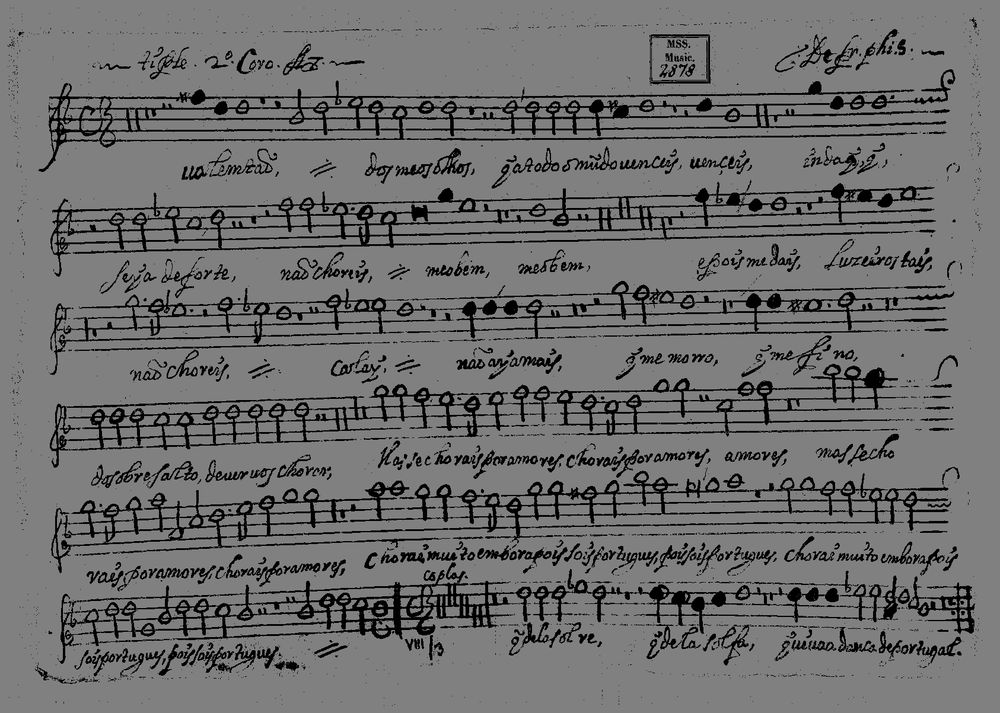 tiple. 2º Coro. Az.
MSS. Music. 2878
De fr. phis.
ualentaõ, dos meos olhos, q̃a todo o mũdo venceis, venceis, inda q̃, q̃,
seya de sorte, naõ choreis, meo bem, meo bem, e pois me dais, luzeiros tais,
naõ choreis, naõ aya mais, q̃ me morro, q̃ me fino,
do sobresalto, de uer uos chorar, Mas se chorais por amores, chorais por amores, amores, mas se cho
rais por amores, chorais por amores, Chorai muito embora pois sois portugues, pois sois portugues, chorai muito embora pois
coplas.
sois portugues, pois sois portugues. VIII /3 q̃ de la sol re, q̃ de la sol fa, portugal.